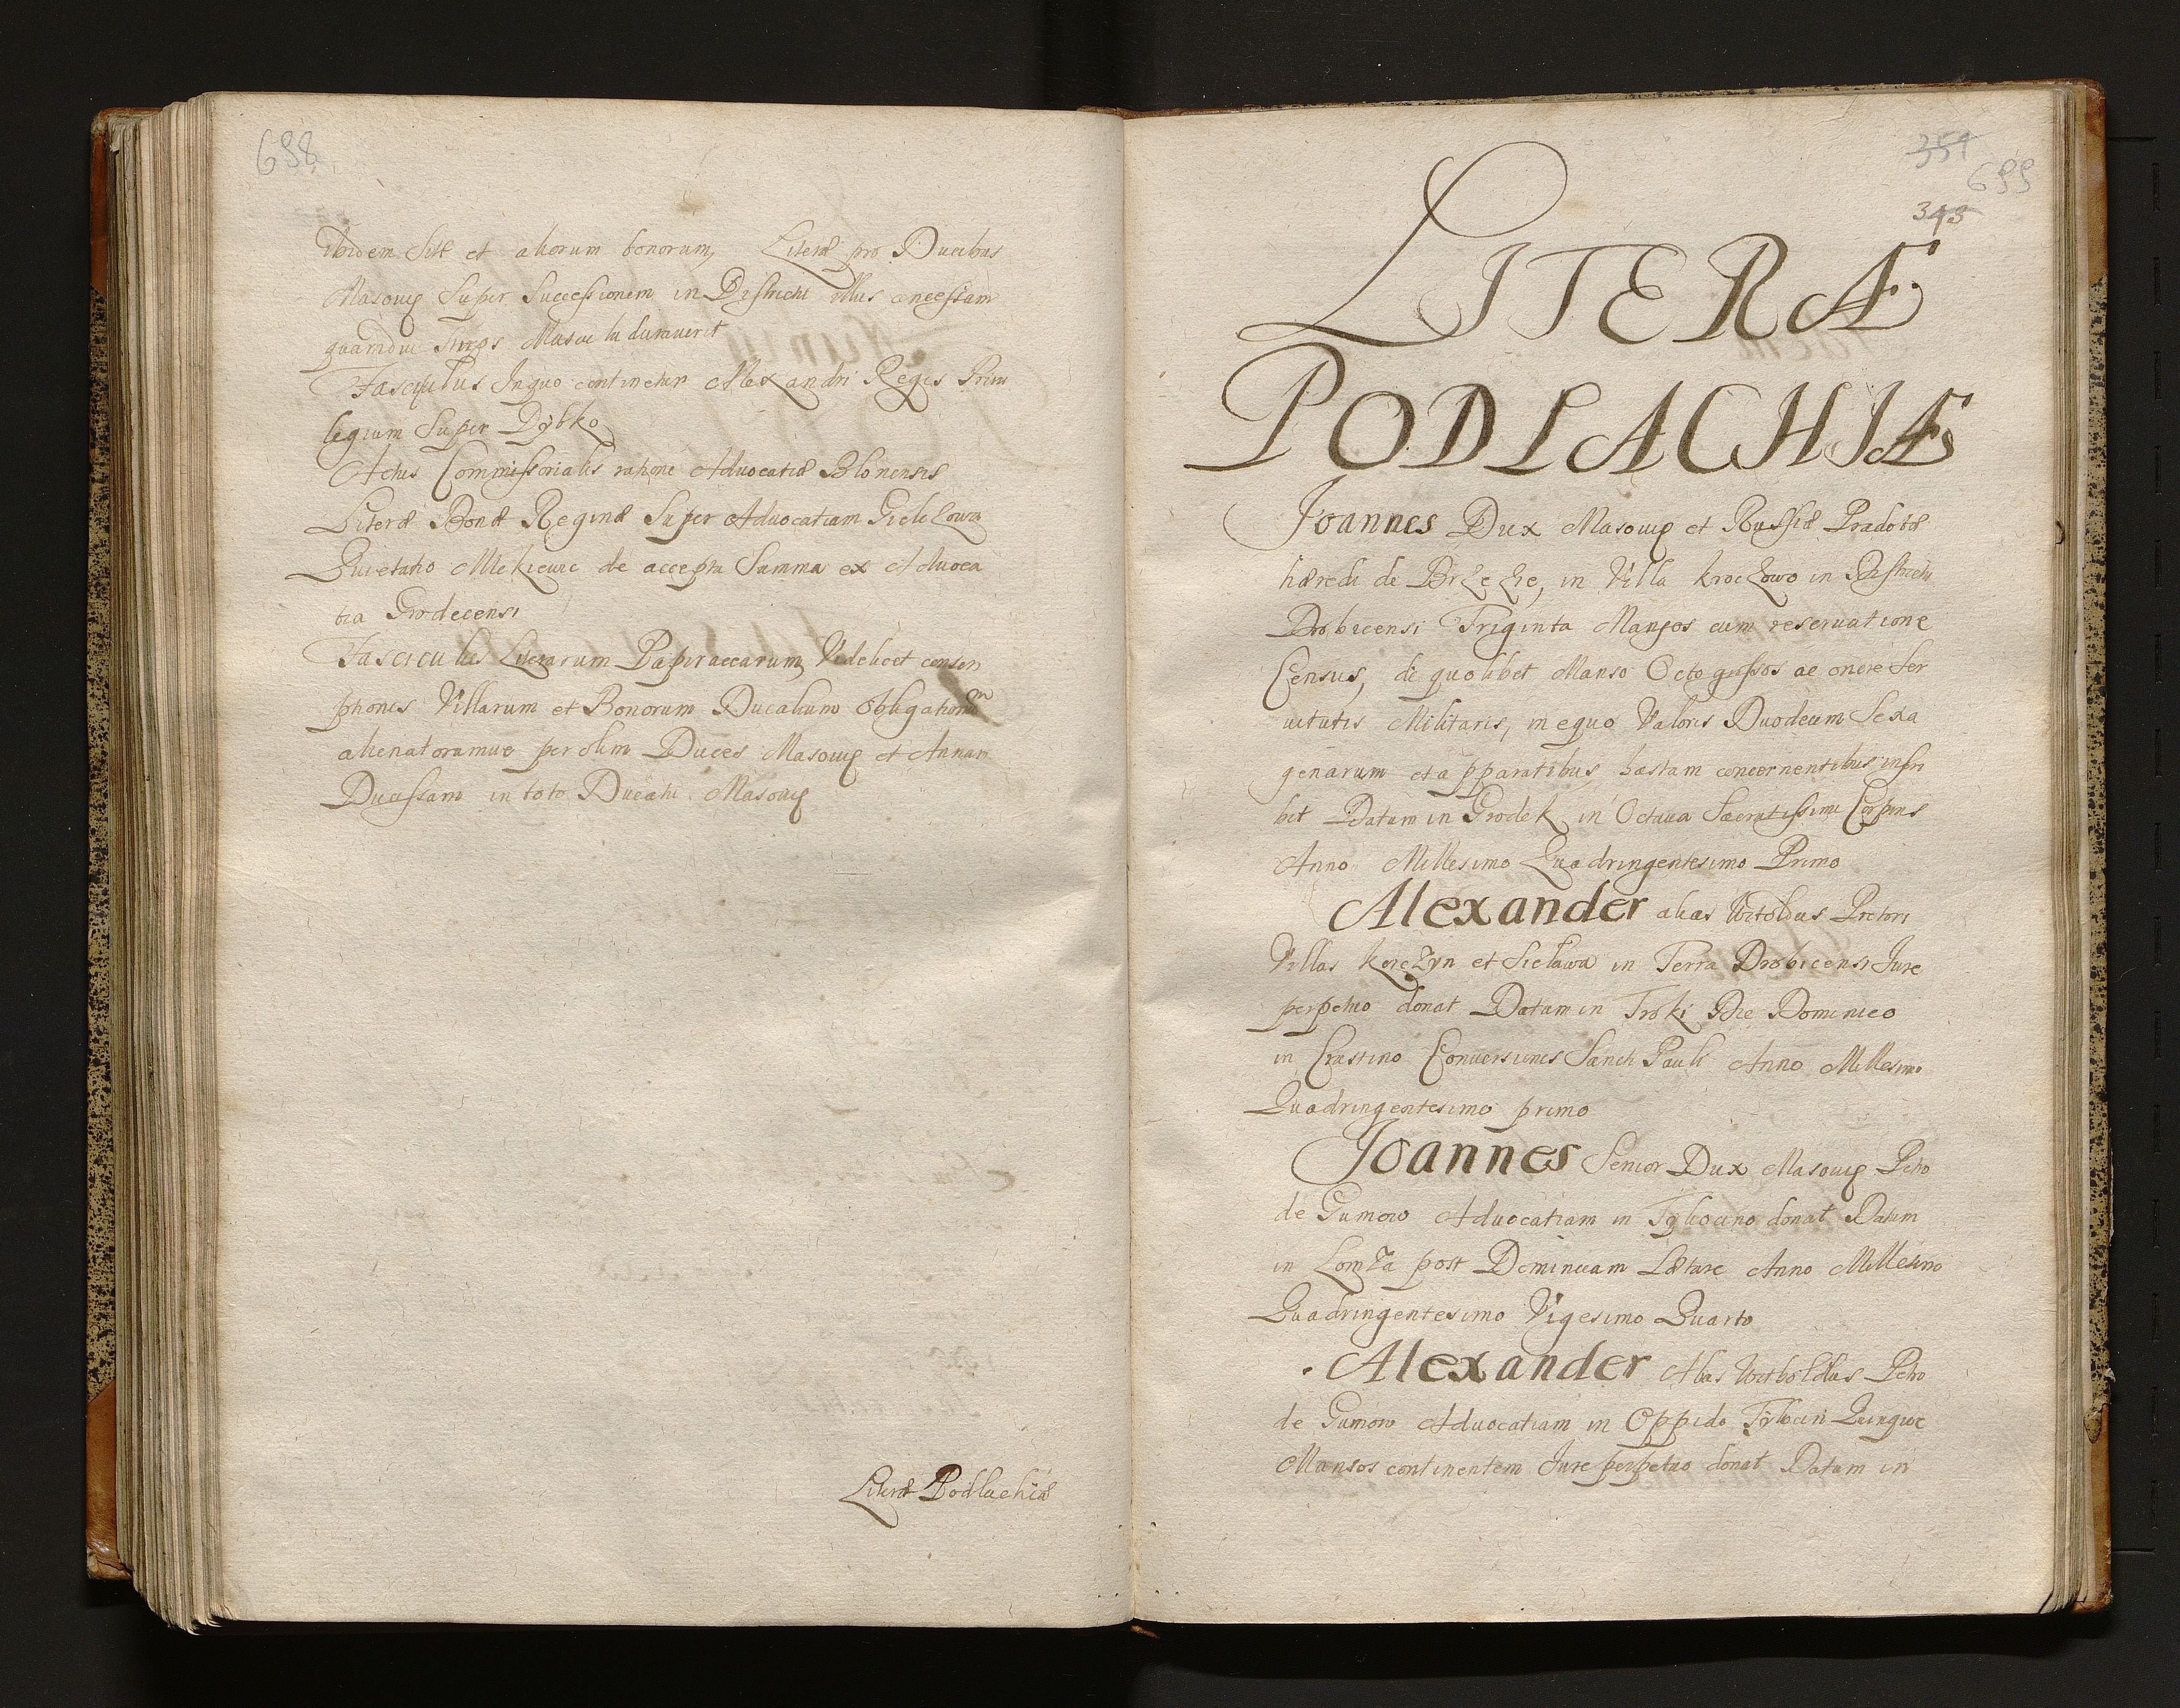 698
ibidem sitt et aliorum bonorum, Literæ pro Ducibus
Masouię Super Successionem in Districtu illius concessam
quamdiu Stirps Mascula durauerit
Fasciculus In quo continetur Alexandri Regis Priui
legium Super Dybko
Actus Commissorialis ratione Aduocatiæ Blonensis
Literæ Bonæ Reginæ Super Aduocatiam
Quietatio de accepta Summa ex Aduoca
tia Grodecensi
Fasciculus Literarum Papiraccarum Videlicet conscri
ptiones Villarum et Bonorum Ducalium Obligationum
alienatorumue per olim Duces Masouię et Annam
Ducissam in toto Ducatu Masouię
Literæ Podlachiæ
354
699
343
LITERÆ
PODLACHIÆ
Joannes Dux Masouię et Russiæ Pradotæ
hæredi de Brzezie, in Villa Kroczowo in Districtu
Drohicensi Triginta Mansos cum reseruatione
Census, de quolibet Manso Octo grossos ac onere Ser
uitutis Militaris, in equo Valoris Duodecim Sexa
genarum et apparatibus hastam concernentibus inscri
bit Datum in Grodek in Octaua Sacratissimi Corporis
Anno Millesimo Quadringentesimo Primo
Alexander alias Witoldus Pretori
Villas Korczyn et Sielawa in Terra Drohicensi Jure
perpetuo donat Datum in Troki Die Dominico
in Crastino Conuersionis Sancti Pauli Anno Millesimo
Quadringentesimo primo
Joannes Senior Dux Masouię Petro
de Gumowo Aduocatiam in Tykocino donat Datum
in Lomza post Dominicam Lætare Anno Millesimo
Quadringentesimo Vigesimo Quarto
Alexander Alias Withóldus Petro
de Gumowo Aduocatiam in Oppido Tykocin Quinque
Mansos continentem Jure perpetuo donat Datum in